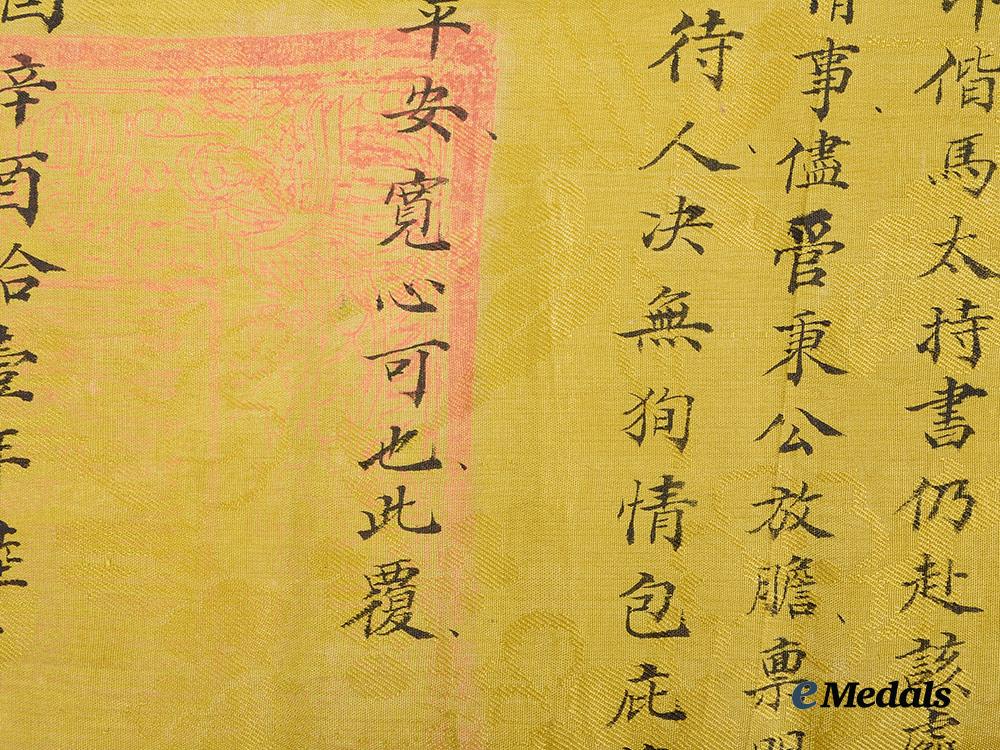 偕馬太持書仍赴該處
情事、儘管秉公放膽、稟明
待人、决無狥情包庇
平安、寬心可也、此覆、
辛酉拾壹年陸
eMedals